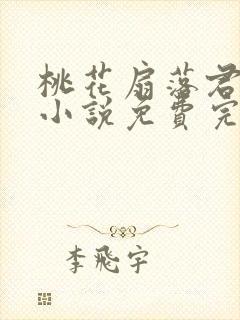 桃花扇落君
小説免費完
李飛宇